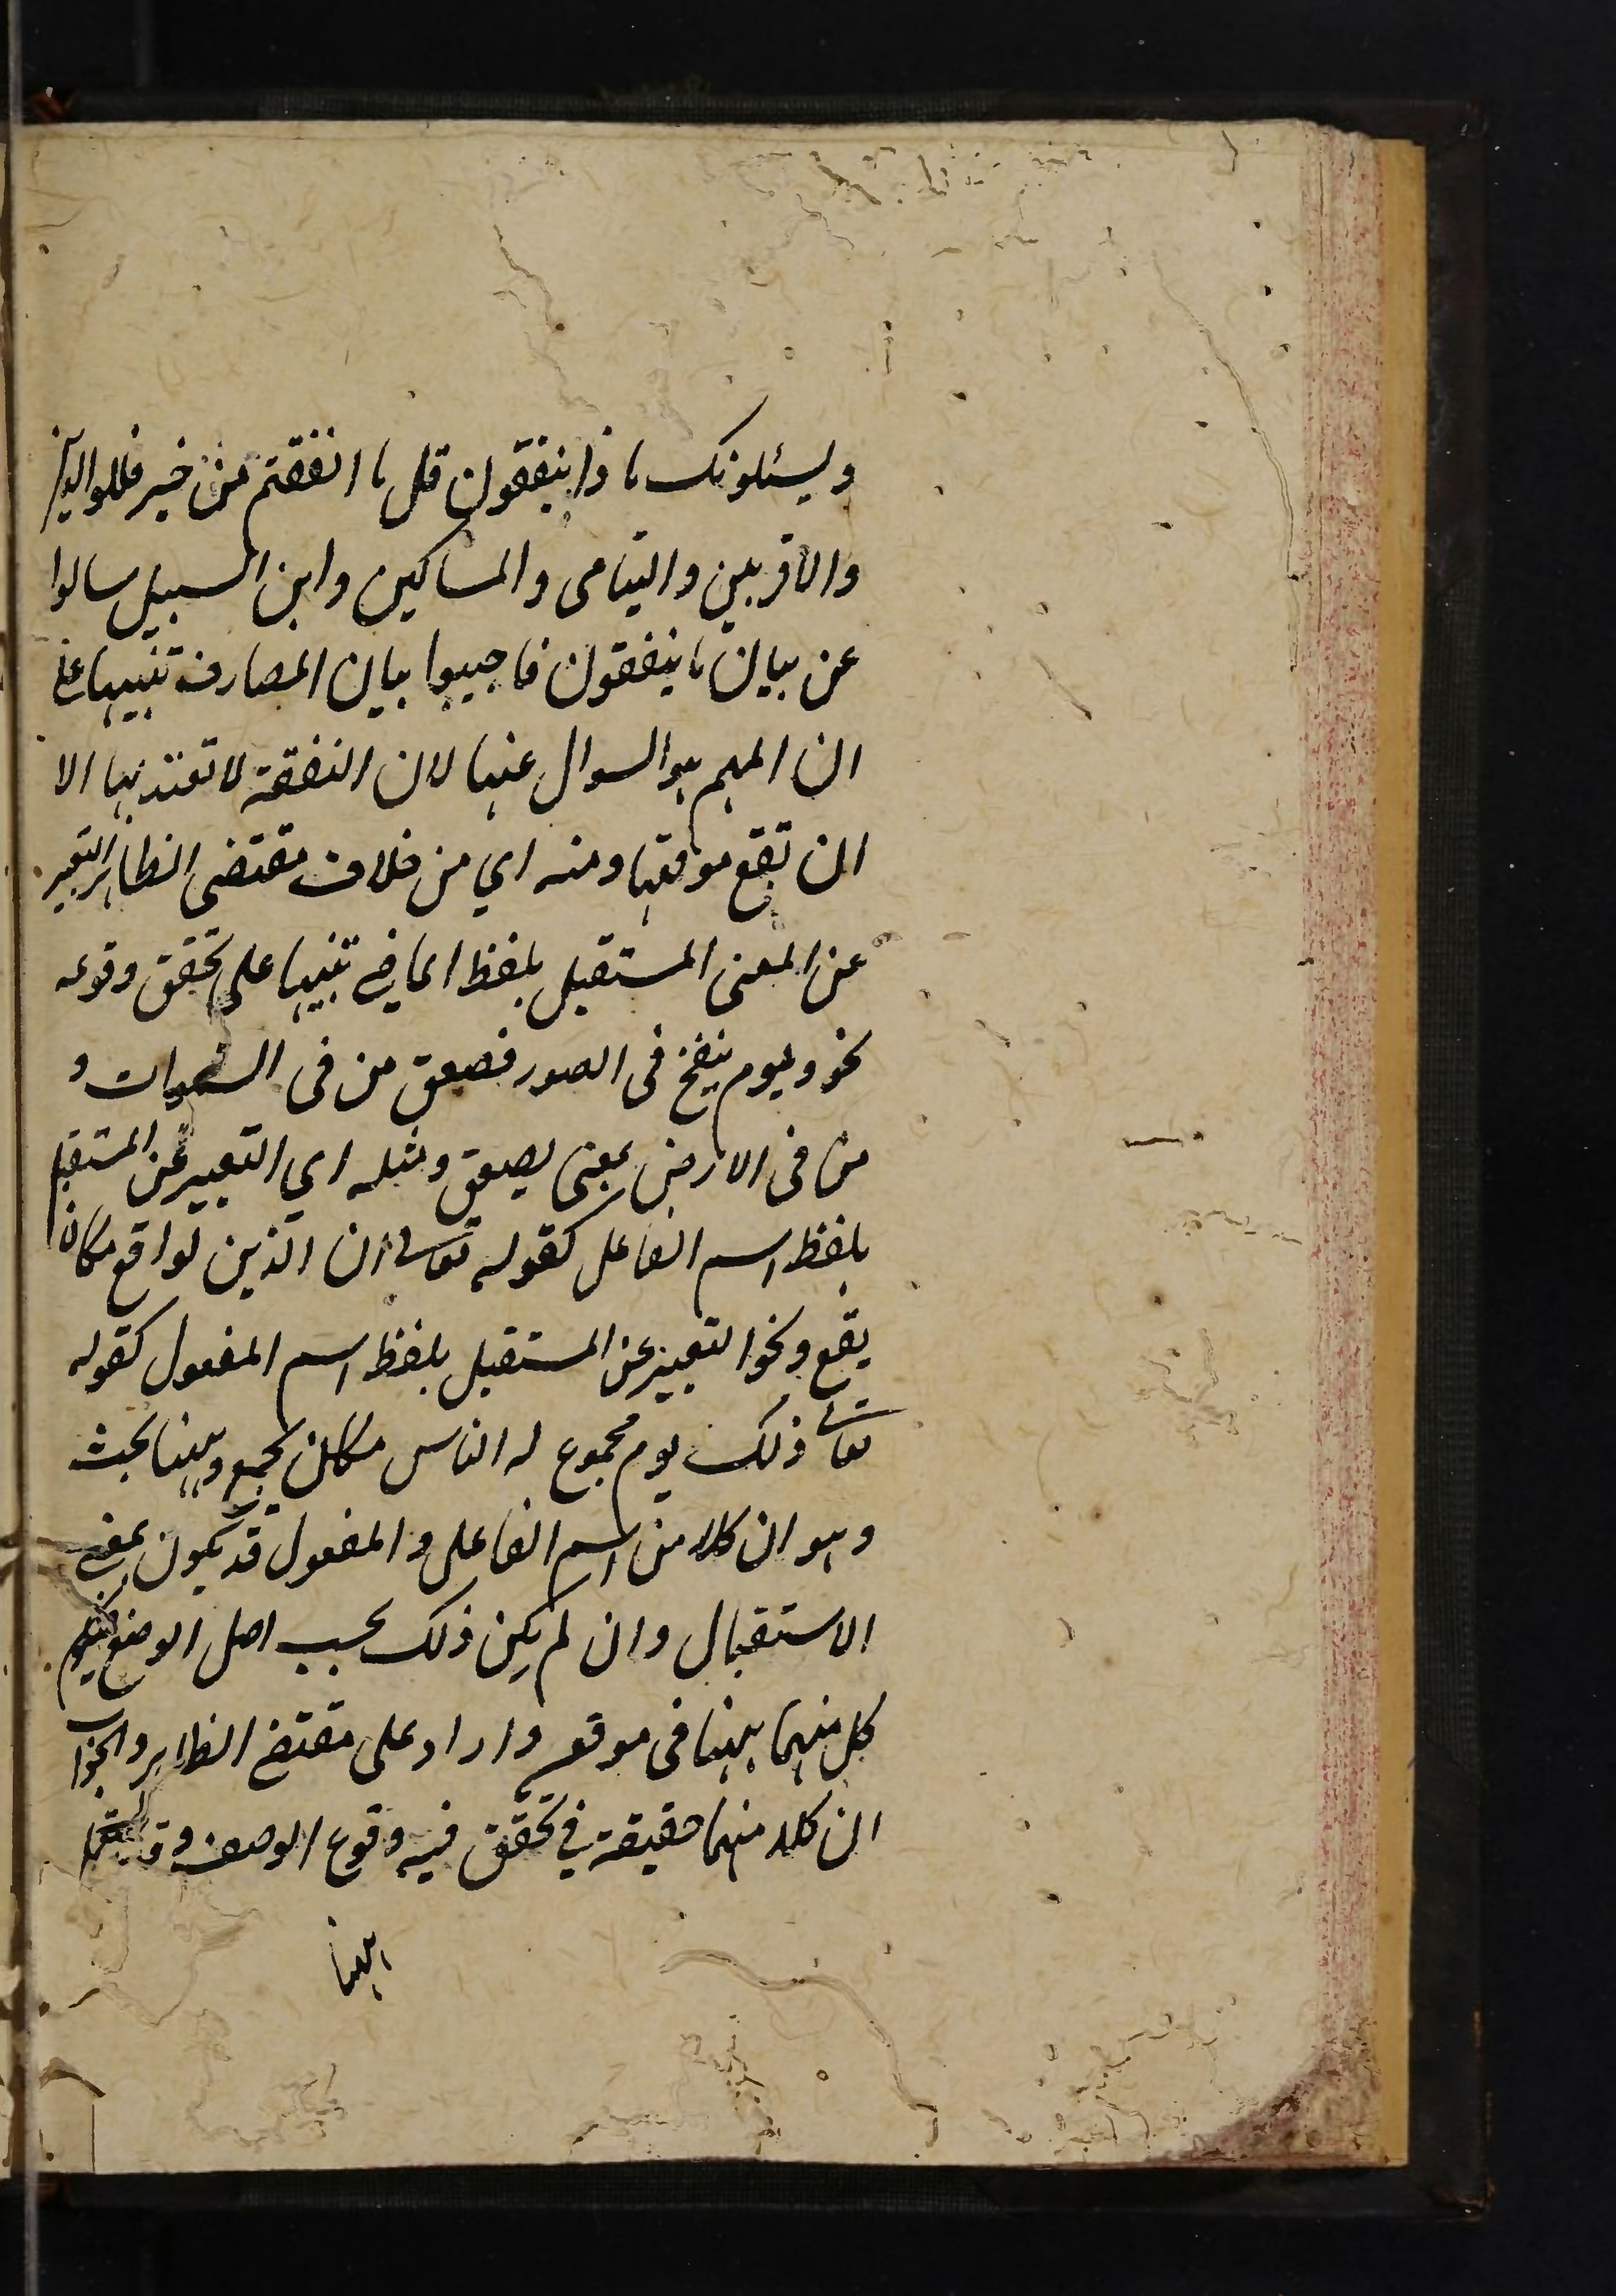 ويسئلونك ماذا ينفقون قل ما انفقتم من خير فللوالدين
والاقربين واليتامى والمساكين وابن السبيل سالوا
عن بيان ما ينفقون فاجيبوا ببيان المصارف تنبيها على
ان المهم هو السوال عنها لان النفقة لا تعتد بها الا
ان تقع موقعها ومنه اي من خلاف مقتضى الظاهر التعبير
عن المعنى المستقبل بلفظ الماضي تنبيها على تحقق وقوعه
نحو ويوم ينفخ في الصور فصعق من في السموات و
من في الارض بمعنى يصعق ومثله اي التعبير عن المستقبل
بلفظ اسم الفاعل كقوله تعالى ان الدين لواقع مكان
يقع ونحو التعبير عن المستقبل بلفظ اسم المفعول كقوله
تعالى ذلك يوم مجموع له الناس مكان يجمع وههنا بحث
وهو ان كلا من اسم الفاعل والمفعول قد يكون بمعنى
الاستقبال وان لم يكن ذلك بحسب اصل الوضع فيكون
كل منهما ههنا في موقعه وارد على مقتضى الظاهر والجواب
ان كلا منهما حقيقة في تحقق فيه وقوع الوصف وقد
ههنا